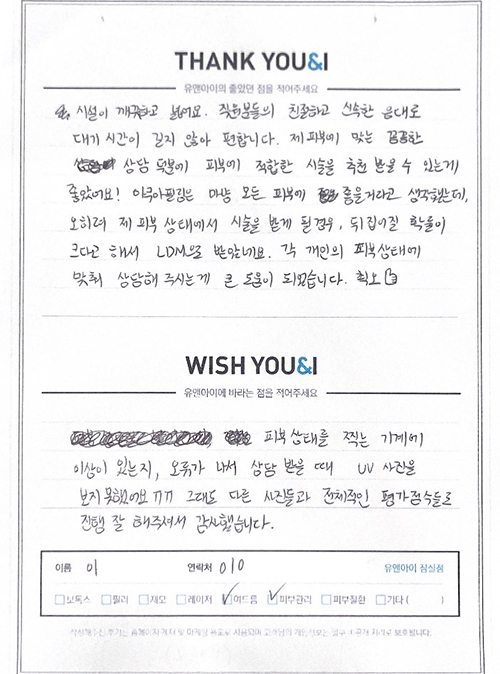 THANK YOU&I
유앤아이의 좋았던 점을 적어주세요
시설이 깨끗하고 넓어요. 직원분들의 친절하고 신속한 응대로
대기시간이 길지 않아 편합니다. 제 피부에 맞는 꼼꼼한
상담 덕분에 피부에 적합한 시술을 추천 받을 수 있는게
좋았어요! 아쿠아필링은 마냥 모든 피부에 좋을거라고 생각했는데,
오히려 제 피부 상태에서 시술을 받게 될 경우, 뒤집어질 확률이
크다고 해서 LDM으로 받았네요. 각 개인의 피부상태에
맞춰 상담해 주시는게 큰 도움이 되었습니다. 최고
WISH YOU&I
유앤아이에 바라는 점을 적어주세요
피부상태를 찍는 기계에
이상이 있는지, 오류가 나서 상담 받을 때 UV 사진을
보지 못했어요 ㄲㄲ 그래도 다른 사진들과 전체적인 평가점수들로
진행 잘 해주셔서 감사했습니다.
이름 이 연락처 010 유앤아이 잠실점
보톡스 필러 제모 레이저 여드름 피부관리 피부질환 기타( )
작성해주신 후기는 홈페이지 게재 및 마케팅 용도로 사용되며 고객님의 개인정보는 일부 비공개 처리로 보호됩니다.